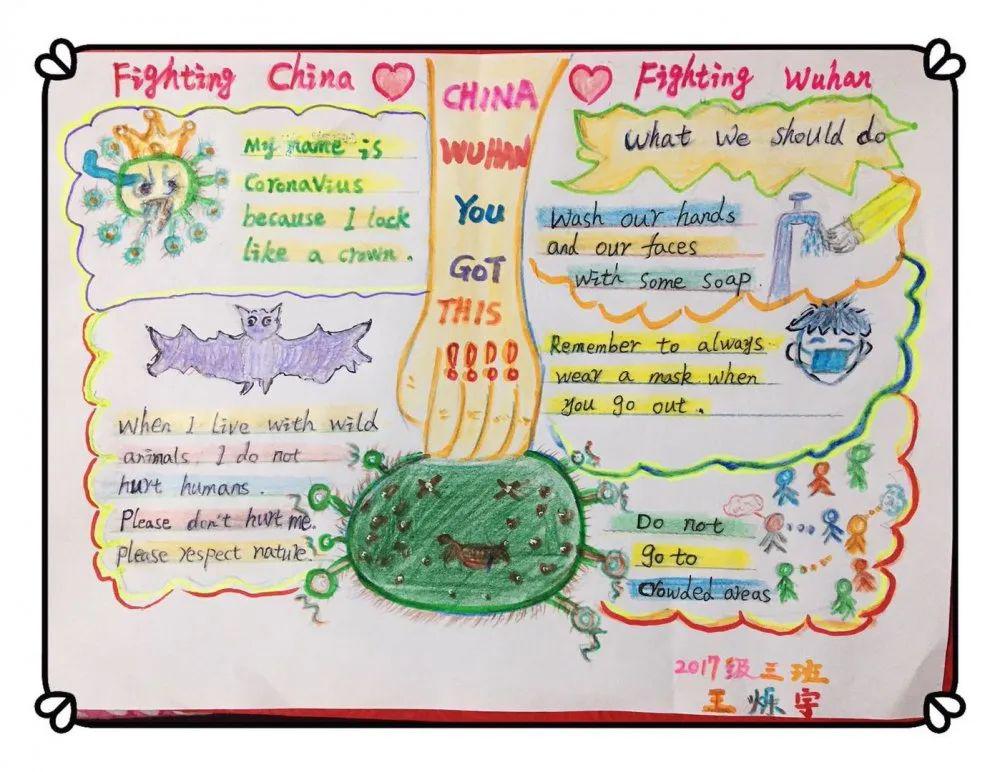 Fighting China
My name is
Coronavius
because I look
like a crown.
When I live with wild
animals, I do not
hurt humans.
Please don't hurt me.
please respect nature.
CHINA
WUHAN
You
GOT
THIS
!!!!
Fighting Wuhan
What we should do
Wash our hands
and our faces
with some soap.
Remember to always
wear a mask when
you go out.
Do not
go to
Crowded areas
2017级三班
王烁宇